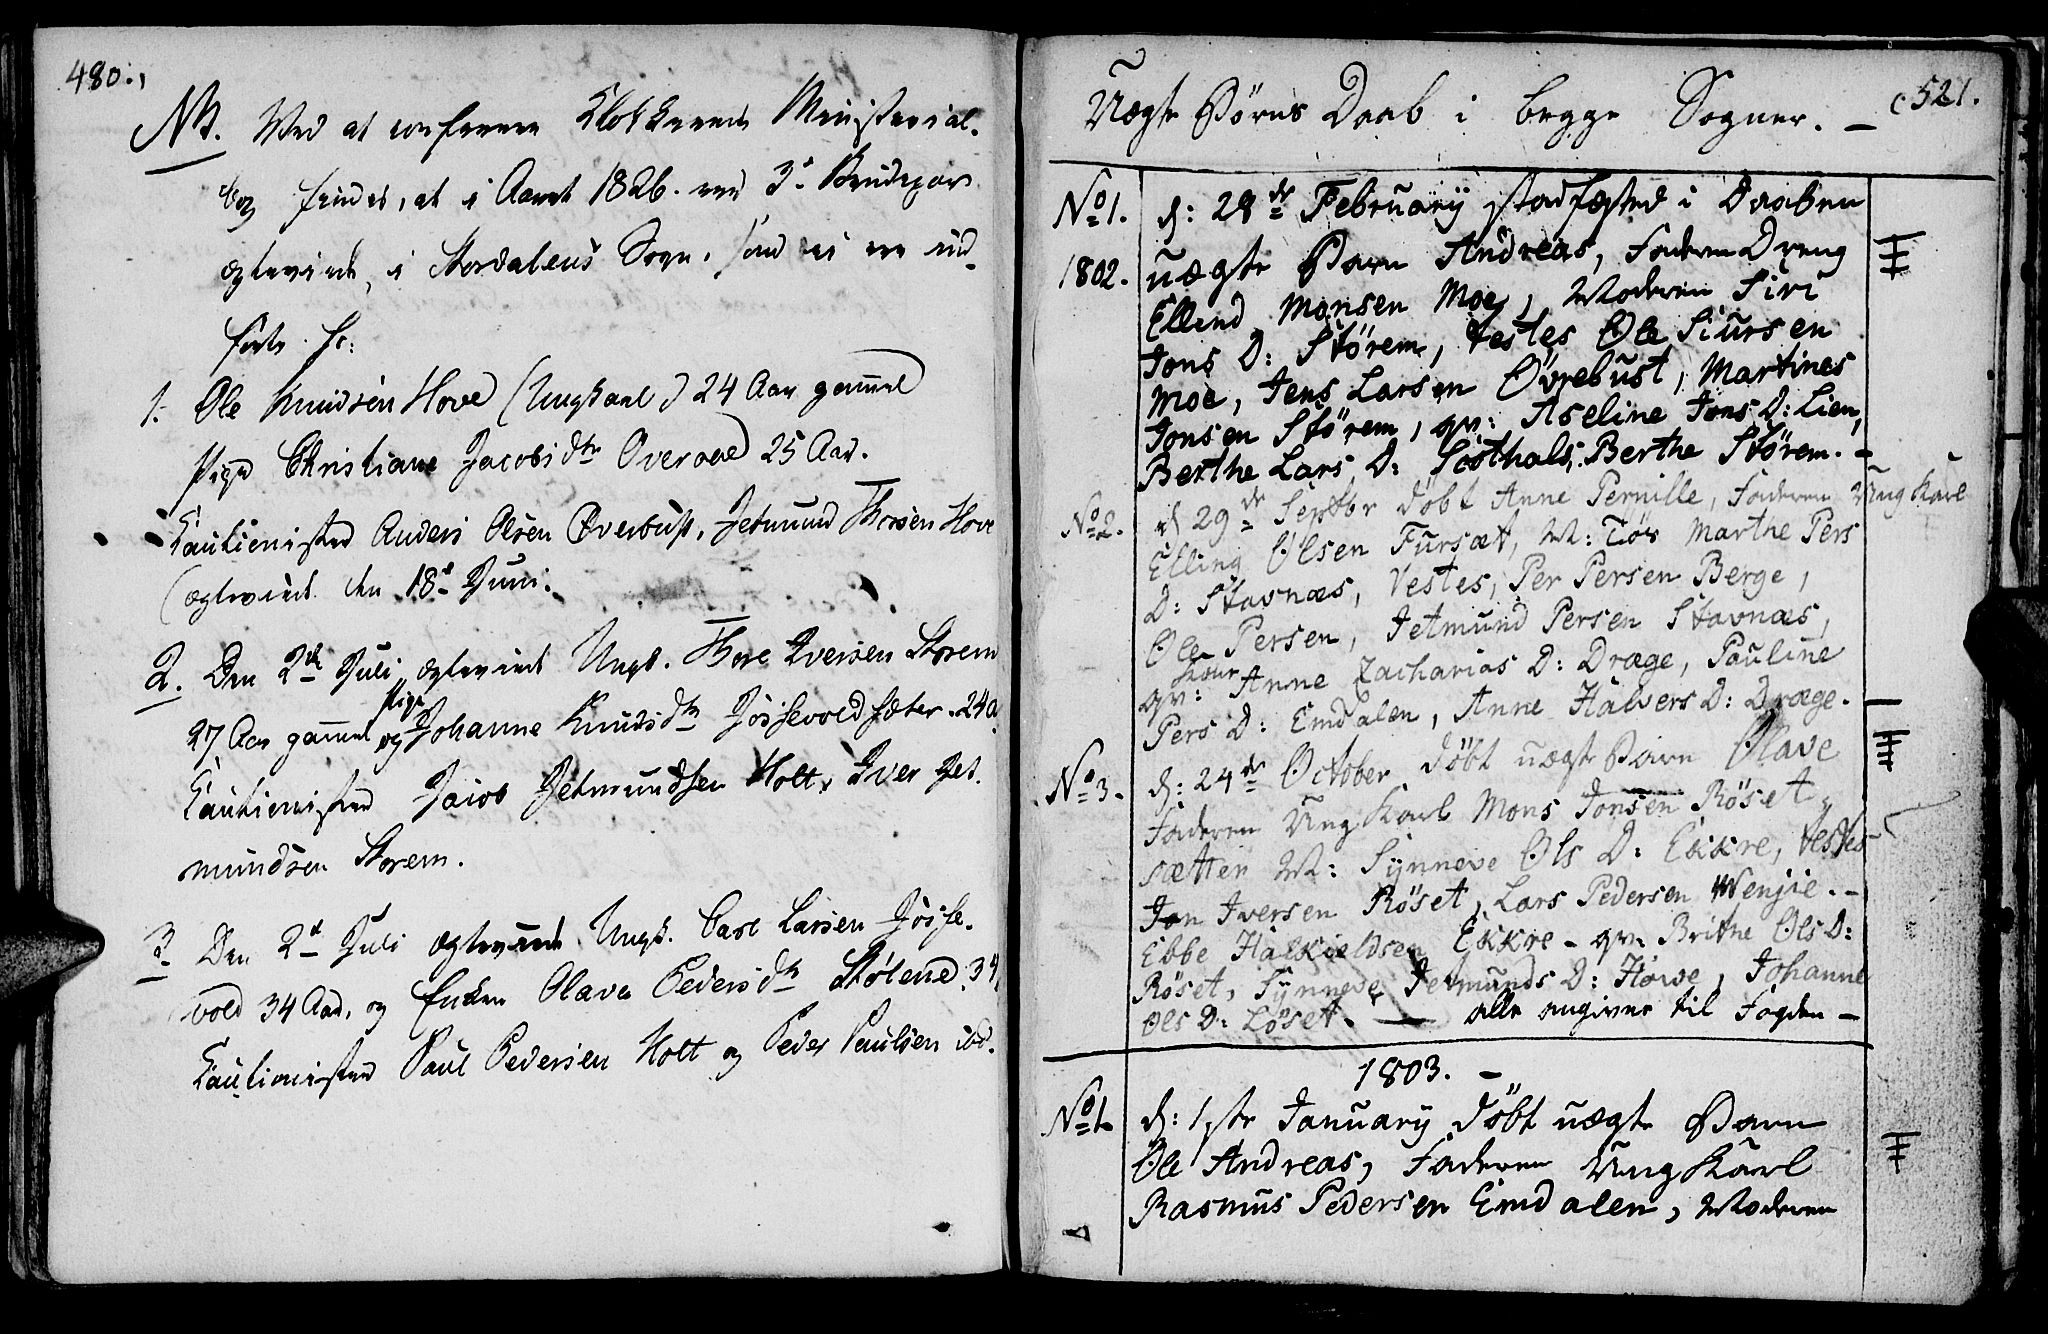 480.
NB. Ved at conferere Klokkerens Ministerial-
bog findes, at i Aaret 1826. ere 3de Brudepar
ægteviede, i Stordalens Sogn, som ei ere ind-
førte. fr:
1. Ole Knudsen Hove (Ungkarl) 24 Aar gammel
Pige Christiane Jacobsdtr Overaae 25 Aar.
Cautionister Anders Olsen Øvrebust, Jetmund Thorsen Hove
(ægteviet den 18de Juni.
2. Den 2den Juli ægteviet Ungk. Thore Iversen Storem
27 Aar gammel og Pige Johanne Knudsdtr Jøssevoldsæter. 24 a
Cautionister Jacob Jetmundsen Holt, Iver Jet-
mundsen Storem.
3. Den 2d Juli ægteviet Ungk. Carl Larsen Jøsse-
vold 34 Aar, og Enken Olave Pedersdtr Stølene. 34
Cautionister Paul Pedersen Holt og Peder Paulsen ibd.
Uægte Børns Daab i begge Sogner. — 521.
No 1. d: 28de February stadfæsted i Daaben
1802. uægte Barn Andreas, Faderen Dreng
Ellend Monsen Moe, Moderen Siri
Jons D: Störem, testes Ole Siursen
Moe, Jens Larsen Övrebust, Martines
Jonsen Störem, qv: Aseline Jons D: Lien,
Berthe Lars D: Berthe Störem. —
No 2. d 29de Septbr döbt Anne Pernille, Faderen Ung Karl
Elling Olsen Fursæt, M: Marthe Pers
D: Stavnæs, Testes, Per Persen Berge,
Ole Persen, Jetmund Persen Stavnæs,
qv: Kone Anne Zacharias D: Dræge, Pauline
Pers D: Emdalen, Anne Halvers D: Dræge.
No 3. d: 24de October döbt uægte Barn Olave
Faderen Ung Karl Mons Jonsen Röset
sætter M: Synneve Ols D: Ekkre, testes
Jon Iversen Röset, Lars Pedersen Wenjie. —
Ebbe Halkieldsen Ekkre — qv: Brithe Ols D:
Röset, Synneve Jetmunds D: Howe, Johanne
Ols D: Löset. — alle angiver til Fogden —
1803. —
No 1. d: 1ste January döbt uægte Barn
Ole Andreas, Faderen Ung Karl
Rasmus Pedersen Emdalen, Moderen